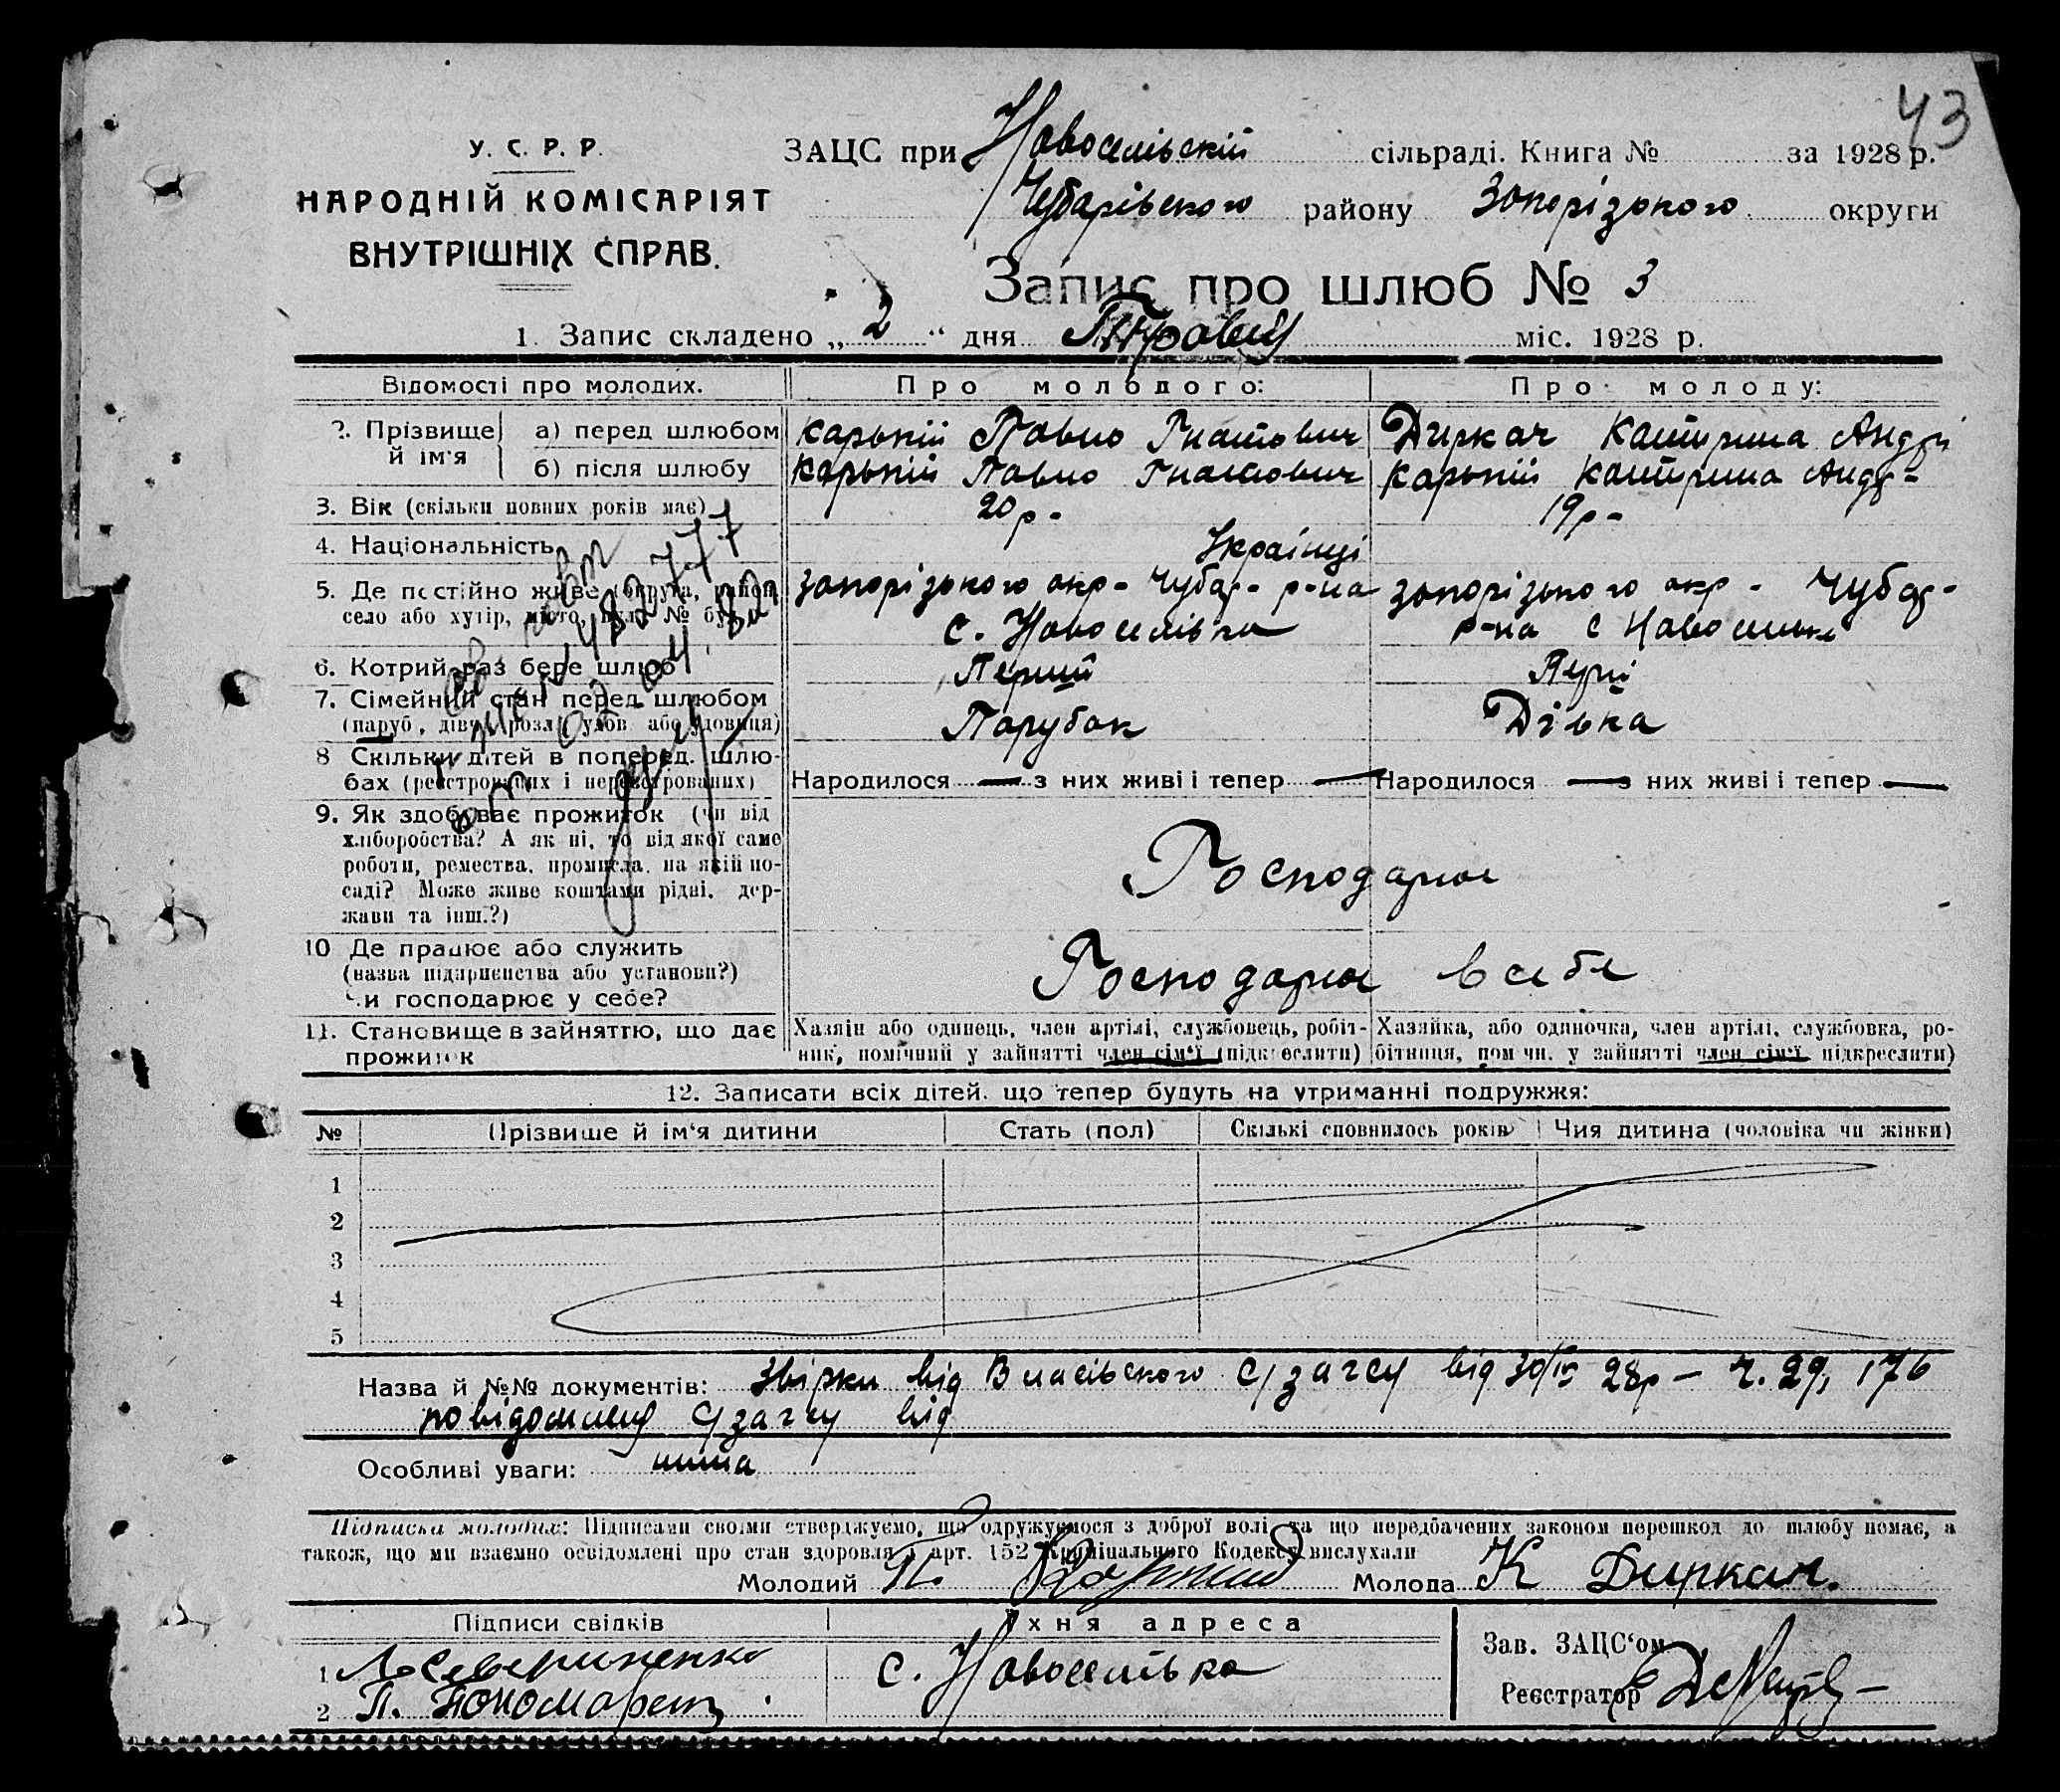 43
У. С. Р. Р.
НАРОДНІЙ КОМІСАРІЯТ
ВНУТРІШНІХ СПРАВ.
ЗАЦС при Новоселівській сільраді. Книга № за 1928 р.
Чубарівського району Запорізького округи
Запис про шлюб № 3
1. Запис складено „ 2 “ дня Травня міс. 1928 р.
Відомості про молодих. Про молодого: Про молоду:
2. Прізвище й ім'я
а) перед шлюбом Карький Павло Гнатович Диркач Катирина Андрі
б) після шлюбу Карький Павло Гнатович Карький Катирина Андр-
3. Вік (скільки повних років має) 20 р- 19 р-
4. Національність Українці
5. Де постійно живе (округа, район, Запорізького окр- Чубар- р-на Запорізького окр- Чубар-
село або хутір, місто, вул. № буд. с. Новоселівка р-на с Новоселівка
6. Котрий раз бере шлюб Перший
7. Сімейний стан перед шлюбом
(паруб, дівч, розл, удов. або удовиця) Парубок Дівка
8 Скільки дітей в поперед. шлю-
бах (реєстрованих і нереєстрованих) Народилося — з них живі і тепер — Народилося — з них живі і тепер —
482777
9. Як здобуває прожиток (чи від
хліборобства? А як ні, то від якої саме
роботи, ремества, промисла, на якій по-
саді? Може живе коштами рідні, дер-
жави та інш.?)
Господарює
10 Де працює або служить
(назва підприємства або установи?)
Чи господарює у себе?
Господарює в себе
11. Становище в зайняттю, що дає
прожиток
Хазяін або одинець, член артілі, службовець, робіт-
ник, помічний у зайнятті член сім'ї (підкреслити)
Хазяйка, або одиночка, член артілі, службовка, ро-
бітниця, пом чн. у зайнятті член сім'ї підкреслити)
12. Записати всіх дітей, що тепер будуть на утриманні подружжя:
№ Прізвише й ім'я дитини Стать (пол) Скількі сповнилось років Чия дитина (чоловіка чи жінки)
1
2
3
4
5
Назва й №№ документів: Звірки від Власівського с/загсу від 30/IV 28р – ч. 29, 176
повідомлення с/загсу від
Особливі уваги: нима
Підписка молодих: Підписами своїми стверджуємо, що одружуємося з доброї волі та що передбачених законом перешкод до шлюбу немає, а
також, що ми взаємно освідомлені про стан здоровля і арт. 152 Кримінального Кодексу вислухали
Молодий П. Карький Молода К Диркач.
Підписи свідків Їхня адреса
1 с. Новоселівка
2 П. Пономарец
Зав. ЗАЦС‘ом
Реєстратор